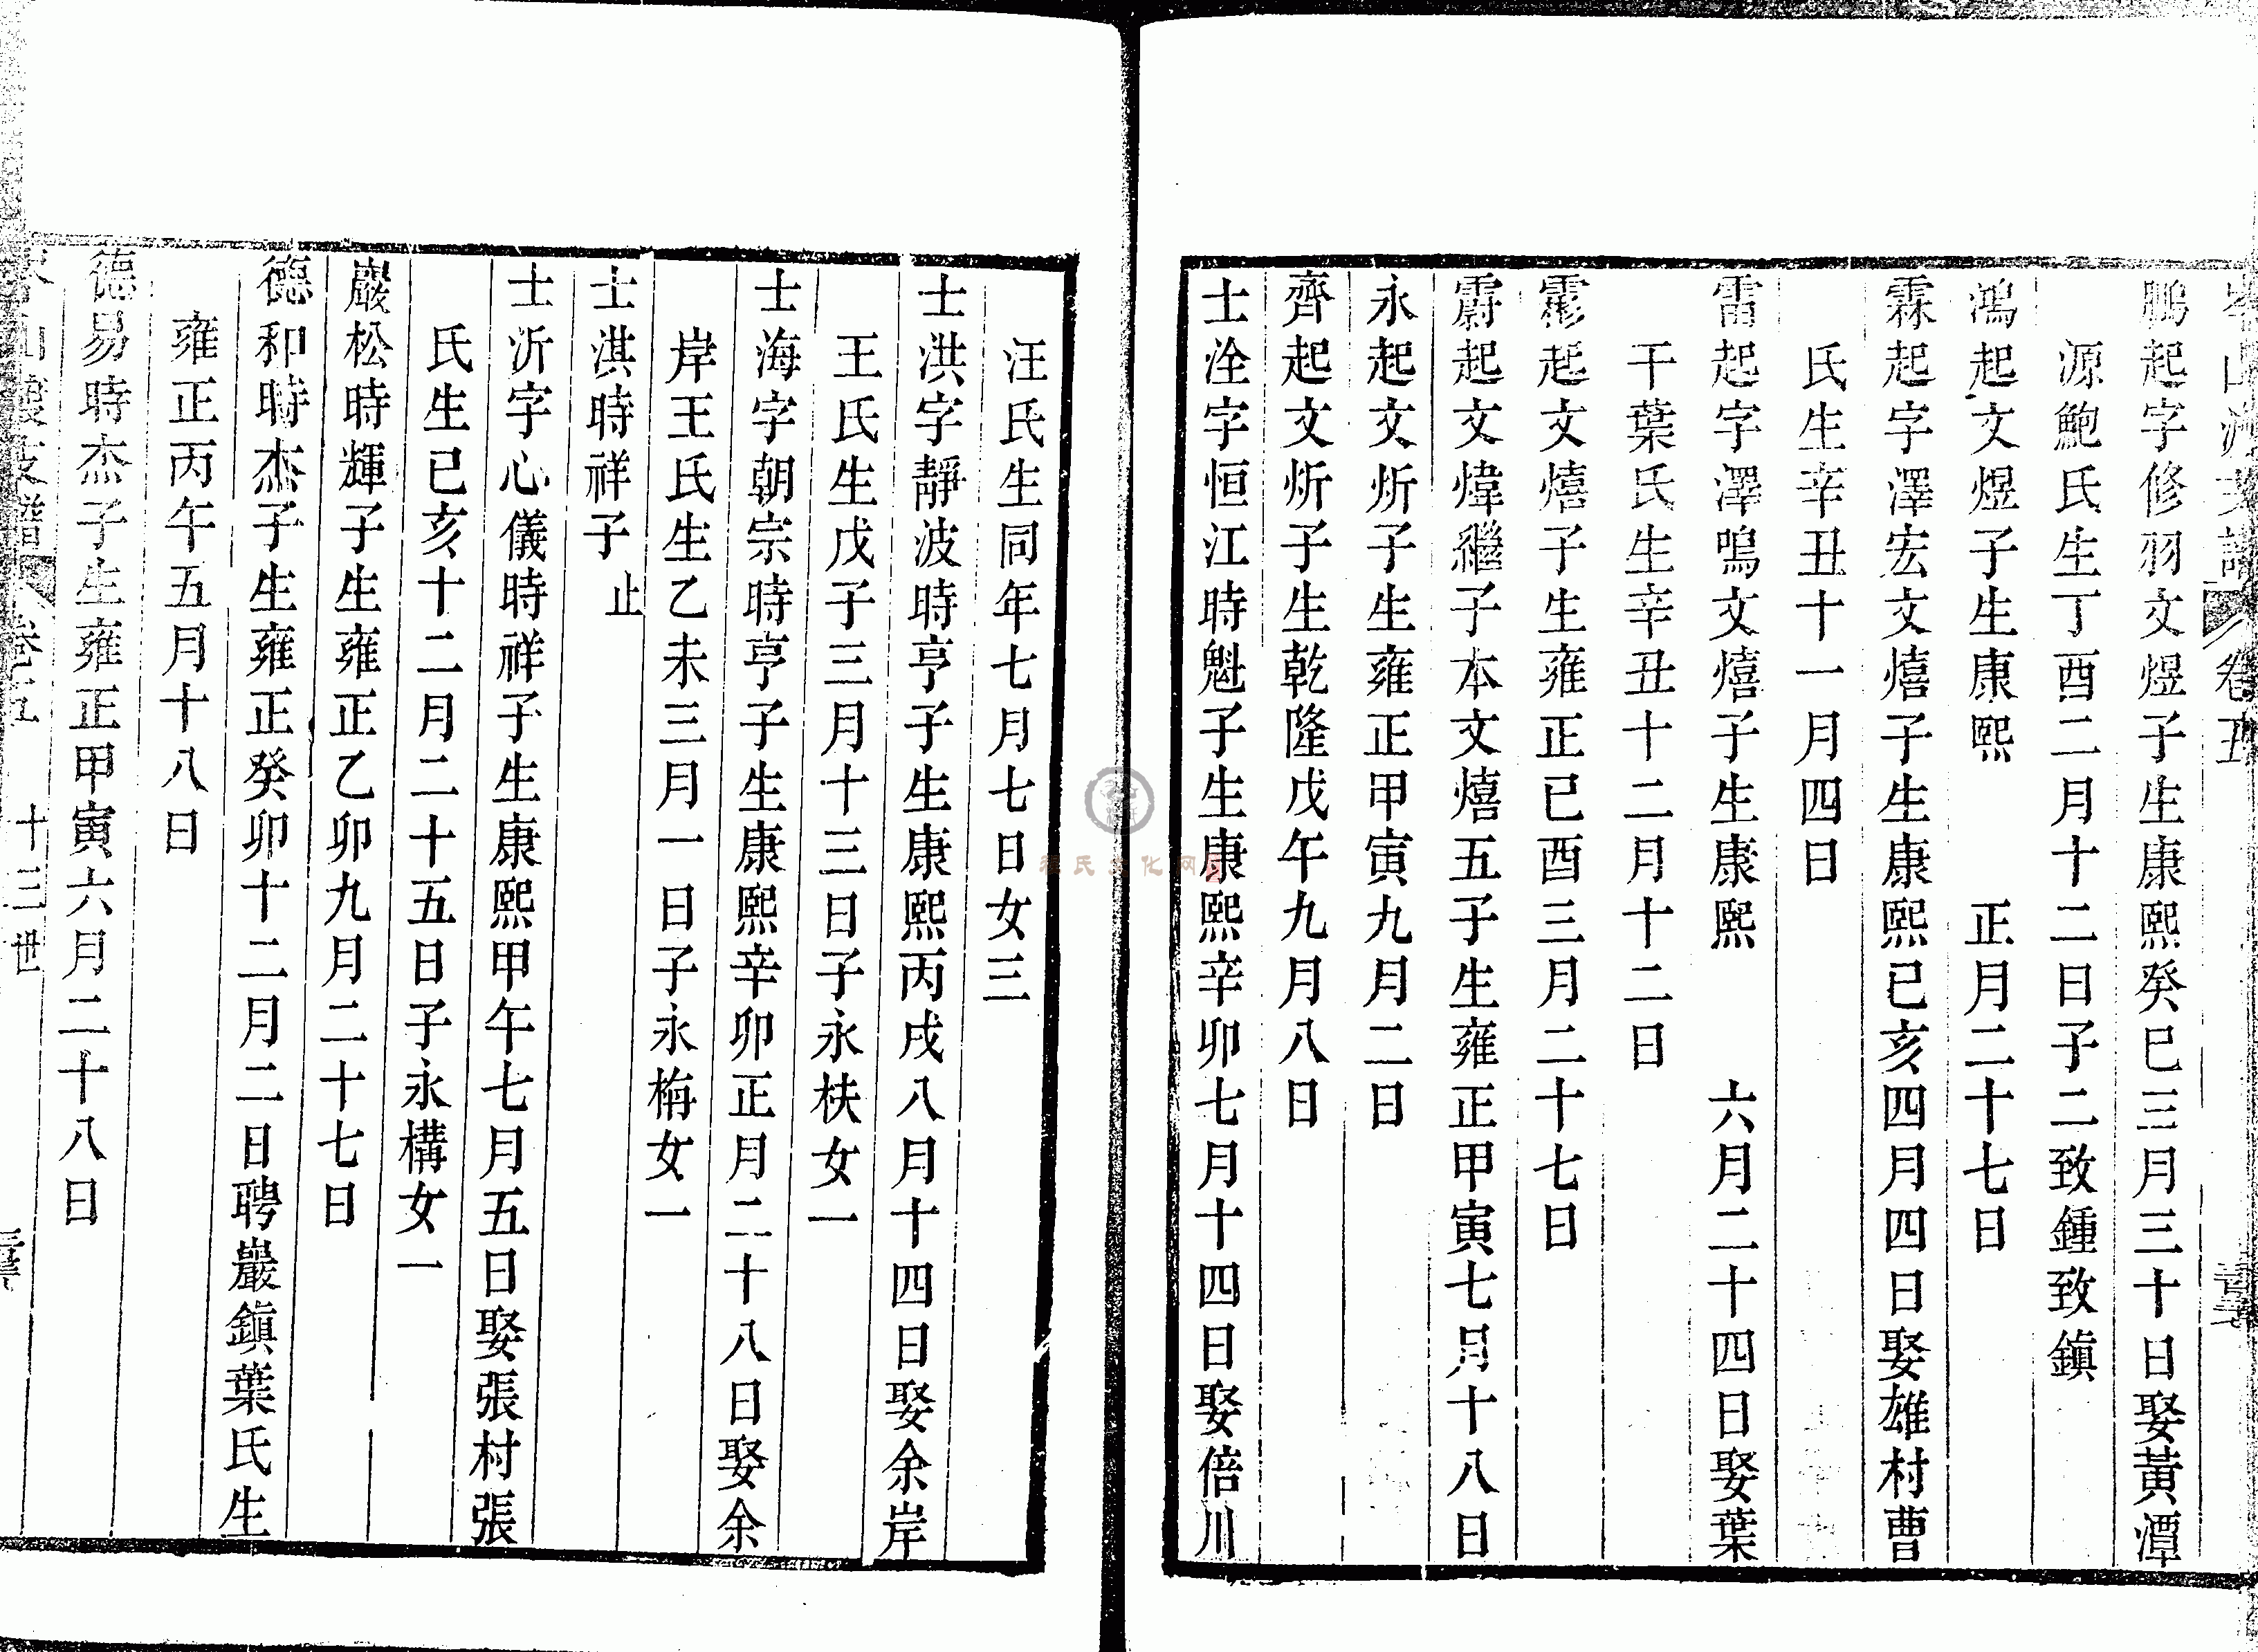 岑山渡支譜 卷五
鵬起字修羽文煜子生康熙癸巳三月三十日娶黃潭
源鮑氏生丁酉二月十二日子二致鍾致鎮
鴻起文煜子生康熙 正月二十七日
霖起字澤宏文熺子生康熙己亥四月四日娶雄村曹
氏生辛丑十一月四日
雷起字澤鳴文熺子生康熙 六月二十四日娶葉
干葉氏生辛丑十二月十二日
霦起文熺子生雍正己酉三月二十七日
霨起文煒繼子本文熺五子生雍正甲寅七月十八日
永起文炘子生雍正甲寅九月二日
齊起文炘子生乾隆戊午九月八日
士洤字恒江時魁子生康熙辛卯七月十四日娶倍川
汪氏生同年七月七日女三
士洪字靜波時亨子生康熙丙戌八月十四日娶余岸
王氏生戊子三月十三日子永扶女一
士海字朝宗時亨子生康熙辛卯正月二十八日娶余
岸王氏生乙未三月一日子永栴女一
士淇時祥子 止
士沂字心儀時祥子生康熙甲午七月五日娶張村張
氏生己亥十二月二十五日子永構女一
巖松時輝子生雍正乙卯九月二十七日
德和時杰子生雍正癸卯十二月二日聘巖鎮葉氏生
雍正丙午五月十八日
德易時杰子生雍正甲寅六月二十八日
岑山渡支譜 卷五 十三世
程氏文化网